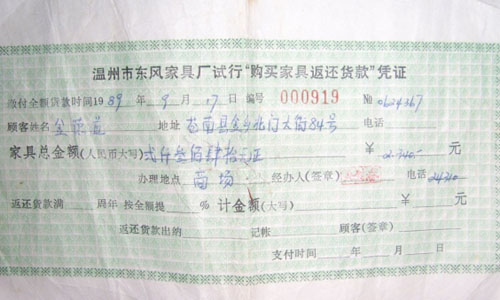 温州市东风家具厂试行“购买家具返还货款”凭证
缴付全额货款时间1989年9月17日 编号 000919 № 0624367
顾客姓名 地址 苍南县金乡北门大街84号 电话
家具总金额(人民币大写) 贰仟叁佰肆拾元正 ¥ 2340— 元
办理地点 商场 经办人(签章) 电话 24340
返还货款满 周年 按全额提 % 计金额(大写) ¥ 元
返还货款出纳 记帐 顾客(签章)
支付时间 年 月 日